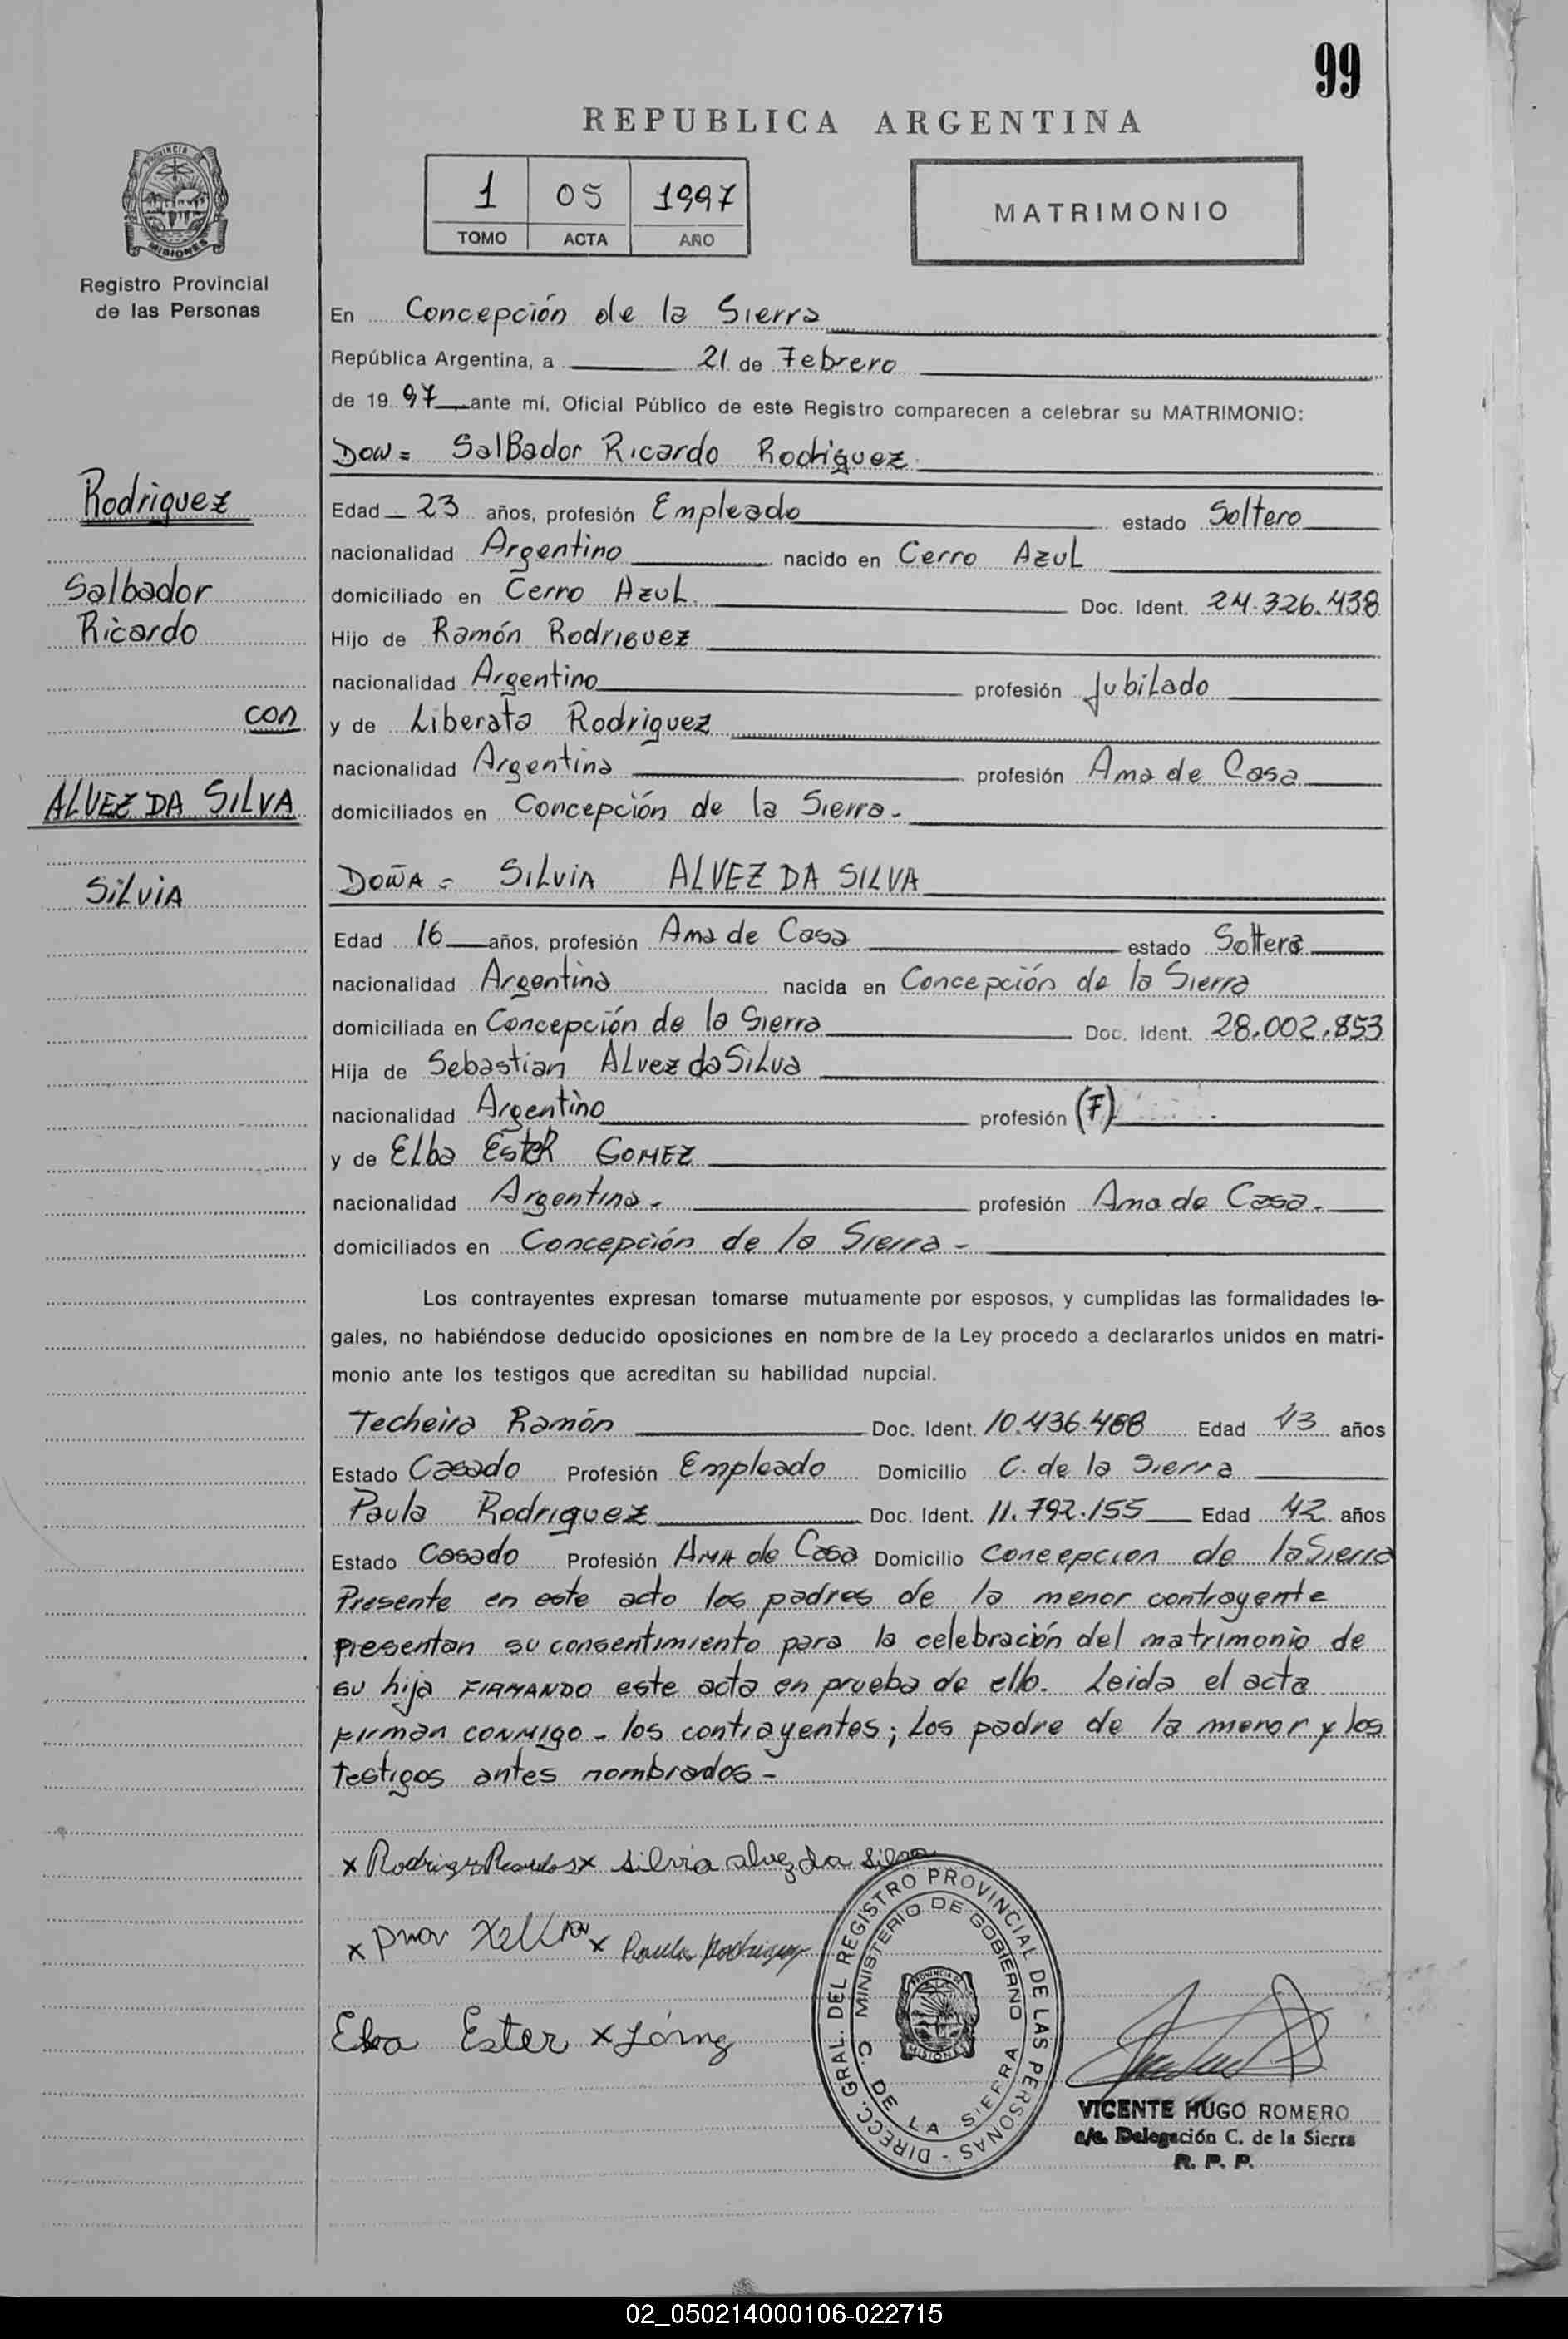 99
REPUBLICA ARGENTINA
1 05 1997
TOMO ACTA AÑO
MATRIMONIO
PROVINCIA DE
MISIONES
Registro Provincial
de las Personas
En Concepción de la Sierra
República Argentina, a 21 de Febrero
de 1997 ante mí, Oficial Público de este Registro comparecen a celebrar su MATRIMONIO:
Don = SalBador Ricardo Rodriguez
Rodriguez
Edad 23 años, profesión Empleado estado Soltero
nacionalidad Argentino nacido en Cerro Azul
Salbador
domiciliado en Cerro Azul Doc. Ident. 24.326.438
Ricardo
Hijo de Ramón Rodriguez
nacionalidad Argentino profesión Jubilado
con
y de Liberata Rodriguez
nacionalidad Argentina profesión Ama de Casa
ALVEZ DA SILVA
domiciliados en Concepción de la Sierra-
DOÑA = SILVIA ALVEZ DA SILVA
SILVIA
Edad 16 años, profesión Ama de Casa estado Soltera
nacionalidad Argentina nacida en Concepción de la Sierra
domiciliada en Concepción de la Sierra Doc. Ident. 28.002.853
Hija de Sebastian Alvez da Silva
nacionalidad Argentino profesión (F)
y de Elba Ester GOMEZ
nacionalidad Argentina- profesión Ama de Casa-
domiciliados en Concepción de la Sierra-
Los contrayentes expresan tomarse mutuamente por esposos, y cumplidas las formalidades le-
gales, no habiéndose deducido oposiciones en nombre de la Ley procedo a declararlos unidos en matri-
monio ante los testigos que acreditan su habilidad nupcial.
Techeira Ramón Doc. Ident. 10.436.488 Edad 43 años
Estado Casado Profesión Empleado Domicilio C. de la Sierra
Paula Rodriguez Doc. Ident. 11.792.155 Edad 42 años
Estado Casado Profesión AMA de Casa Domicilio concepcion de la Sierra
Presente en este acto los padres de la menor contrayente
presentan su consentimiento para la celebración del matrimonio de
su hija FIRMANDO este acta en prueba de ello. Leida el acta
firman conmigo- los contrayentes; Los padre de la menor y los
testigos antes nombrados-
x Rodriguez Ricardo S x silvia alvez da silva
x x Paula Rodriguez
Elba Ester x Gómez
DIRECC. GRAL. DEL REGISTRO PROVINCIAL DE LAS PERSONAS -
MINISTERIO DE GOBIERNO
PROVINCIA DE
MISIONES
C. DE LA SIERRA
VICENTE HUGO ROMERO
a/c. Delegación C. de la Sierra
R. P. P.
02_050214000106-022715